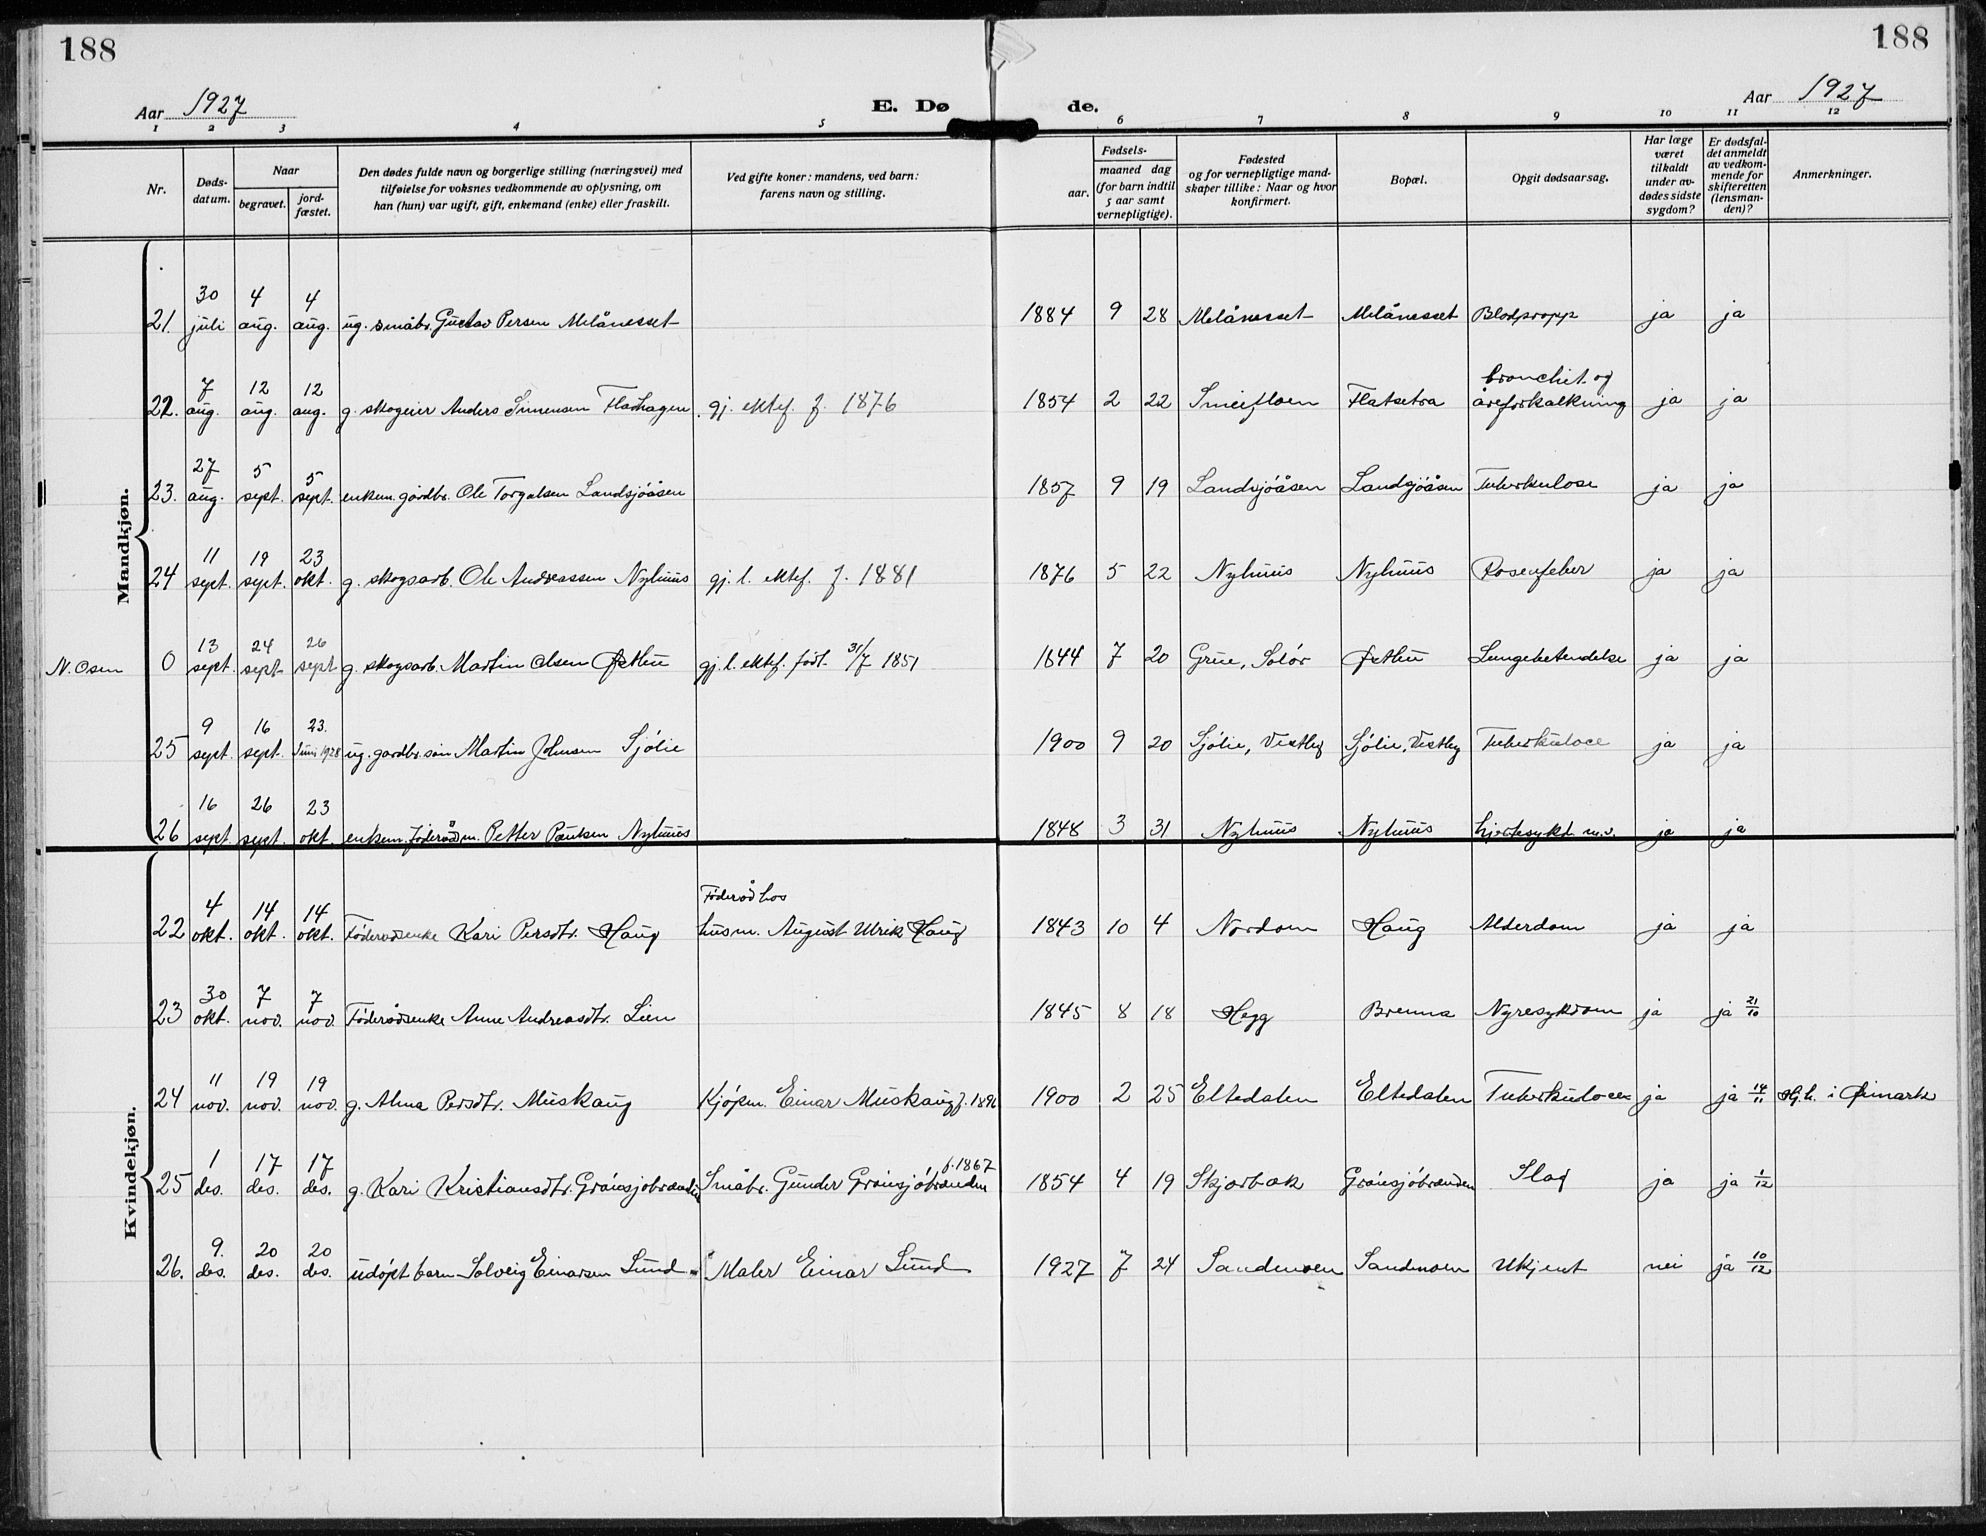 188
188
Aar 1927
E. Dø
de.
Aar 1927
1 2 3 4 5 6 7 8 9 10 11 12
Nr.
Døds-
datum.
Naar
begravet.
jord-
fæstet.
Den dødes fulde navn og borgerlige stilling (næringsvei) med
tilføielse for voksnes vedkommende av oplysning, om
han (hun) var ugift, gift, enkemand (enke) eller fraskilt.
Ved gifte koner: mandens, ved barn:
farens navn og stilling.
Fødsels-
aar.
maaned dag
(for barn indtil
5 aar samt
vernepligtige).
Fødested
og for vernepligtige mand-
skaper tillike: Naar og hvor
konfirmert.
Bopæl.
Opgit dødsaarsag.
Har læge
været
tilkaldt
under av-
dødes sidste
sygdom?
Er dødsfal-
det anmeldt
av vedkom-
mende for
skifteretten
(lensman-
den)?
Anmerkninger.
Mandkjøn.
30 4 4
21. juli aug. aug. ug. småbr. Gustav Persen Melånesset 1884 9 28 Melånesset Melånesset Blodpropp ja ja
7 12 12 bronchit og
22. aug. aug. aug. g. skogeier Anders Simensen Flathagen gj. ektef. f. 1876 1854 2 22 Smeifloen Flatsetra åreforkalkning ja ja
27 5 5
23. aug. sept. sept. enkem. gårdbr. Ole Torgalsen Landsjöåsen 1857 9 19 Landsjöåsen Landsjöåsen Tuberkulose ja ja
11 19 23
24 sept. sept. okt. g. skogsarb. Ole Andreassen Nyhuus gj. l. ektef. f. 1881 1876 5 22 Nyhuus Nyhuus Rosenfeber ja ja
13 24 26
N. Osen 0 sept. sept sept g. skogsarb. Martin Olsen Östhu gj. l. ektef. født 31/7 1851 1844 7 20 Grue, Solör Östhu Lungebetendelse ja ja
9 16 23.
25 sept. sept. Juni 1928 ug. gardbr. sön Martin Johnsen Sjölie 1900 9 20 Sjölie, Vestby Sjölie, Vestby Tuberkulose ja ja
16 26 23
26 sept. sept. okt. enkem. föderådm. Petter Paulsen Nyhuus 1848 3 31 Nyhuus Nyhuus hjertesykd. m.v. ja ja
Kvindekjøn.
4 14 14 Föderåd hos
22 okt. okt. okt. Föderådsenke Kari Persdtr. Haug husm. August Ulrik Haug 1843 10 4 Nordom Haug Alderdom ja ja
30 7 7
23 okt. nov. nov. Föderådsenke Anne Andreasdtr. Lien 1845 8 18 Hegg Brenna Nyresykdom ja ja 21/10
11 19 19
24 nov. nov. nov. g. Alma Persdtr. Muskaug Kjöpm. Einar Muskaug f. 1896 1900 2 25 Eltedalen Eltedalen Tuberkulose ja ja 14/11
1 17 17 f. 1867
25 des. des. des. g. Kari Kristiansdtr. Grönsjöbranden Småbr. Gunder Grönsjöbranden 1854 4 19 Skjærbæk Grönsjöbranden Slag ja ja 1/12
9. 20 20
26. des. des. des. udöpt barn Solveig Einarsen Lund Maler Einar Lund 1927 7 24 Sandmoen Sandmoen Ukjent nei ja 10/12